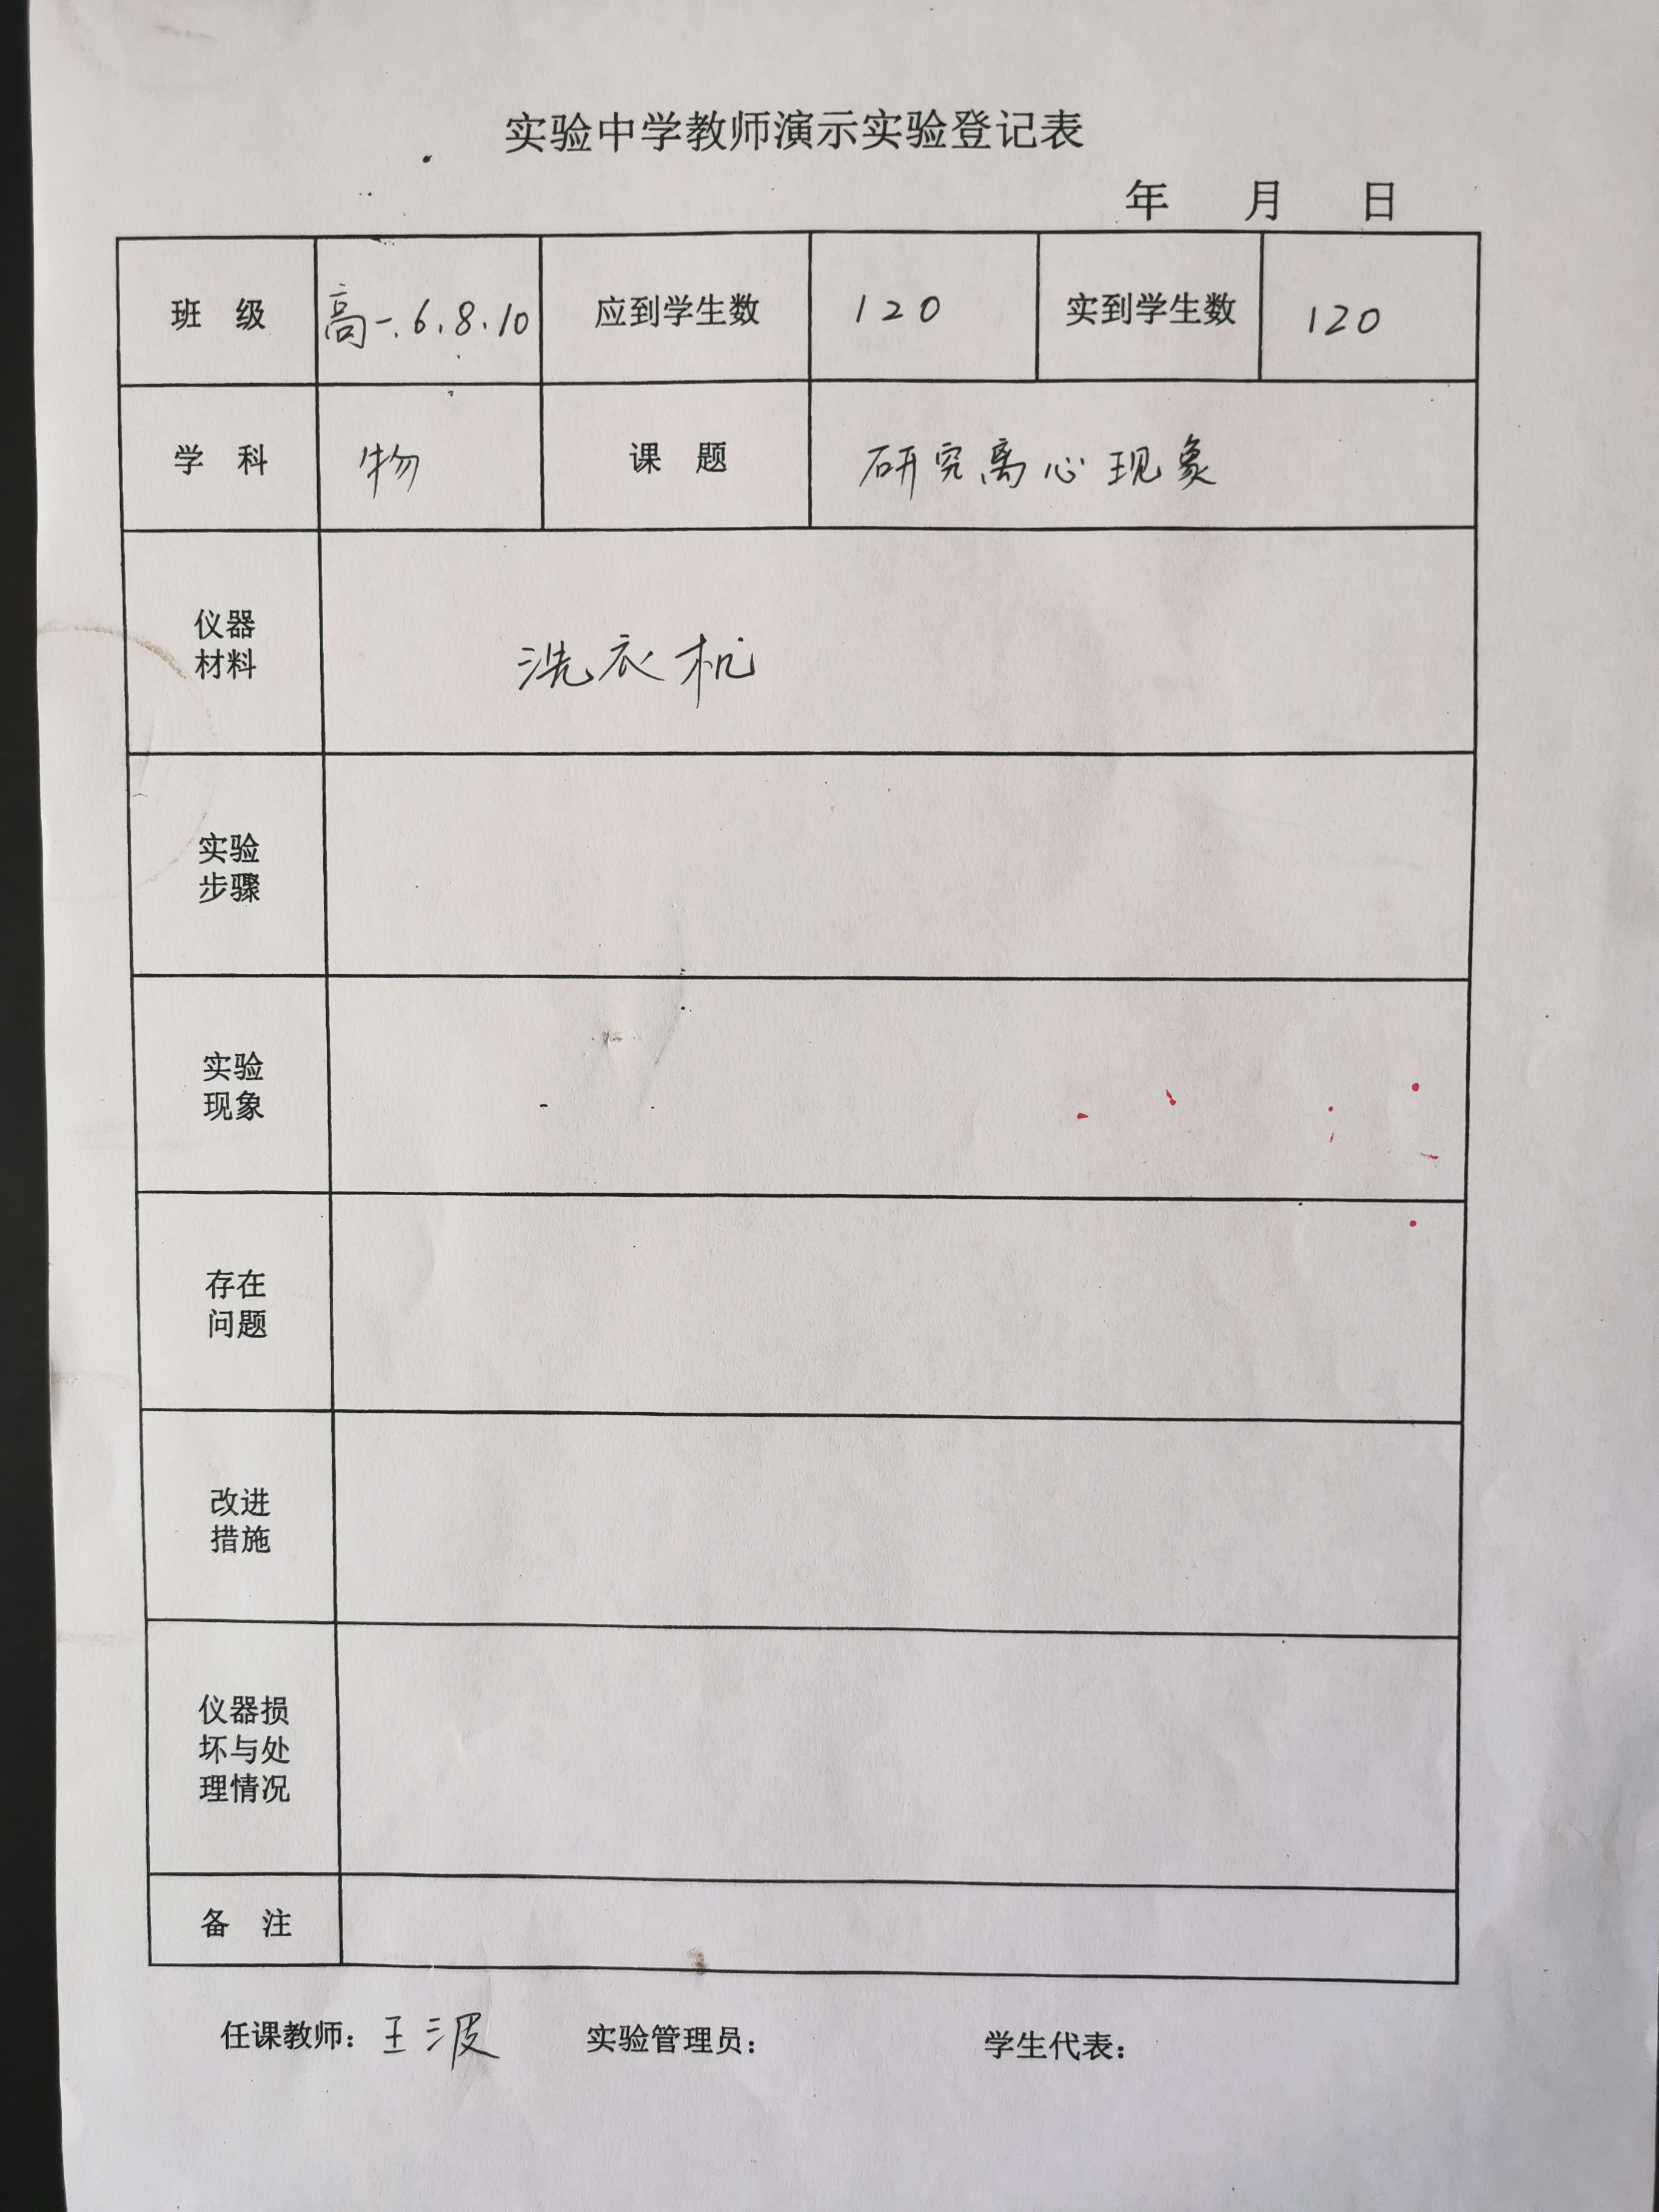 实验中学教师演示实验登记表
年 月 日
班 级 高一.6.8.10 应到学生数 120 实到学生数 120
学 科 物 课 题 研究离心现象
仪器
材料
洗衣机
实验
步骤
实验
现象
存在
问题
改进
措施
仪器损
坏与处
理情况
备 注
任课教师：王波 实验管理员： 学生代表：